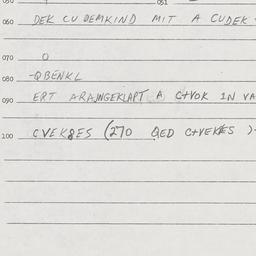 051
060 DEK CU DEMKIND MIT A CUDEK
070 O
080 -QBENKL
090 ERT ARAJNGEKLAPT A C+VOK IN VA
100 CVEKSES (270 QED C+VEKES )